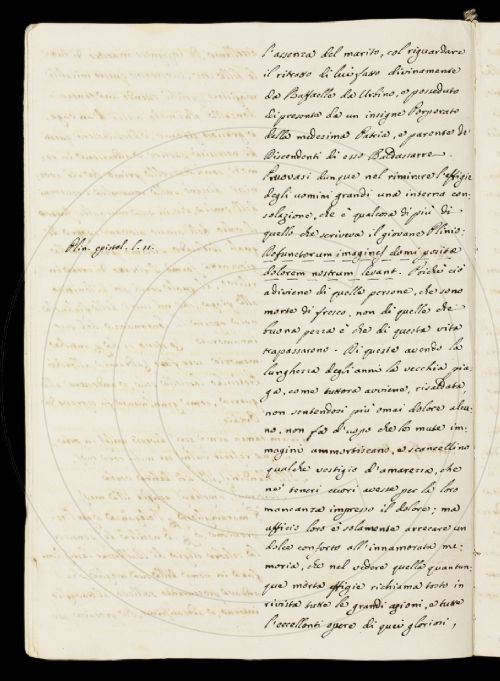 l'assenza del marito, col riguardare
il ritratto di lui fatto divinamente
da Raffaelle da Urbino, e posseduto
di presente da un insigne Porporato
della medesima Patria, e parente de'
Discendenti di esso Baldassarre.
Pruovasi dunque nel rimirare l'effigie
degli uomini grandi una interna con-
solazione, che è qualcosa di più di
quello che scriveva il giovane Plinio:
Plin. epistol. l. 11.
Defunctorum imagines domi positæ
dolorem nostrum levant. Poiché ciò
adiviene di quelle persone, che sono
morte di fresco, non di quelle che
buona pezza è che di questa vita
trapassarono. Di queste avendo la
lunghezza degli anni la vecchia pia-
ga, come tuttora avviene, risaldata
non sentendosi più omai dolore alcu-
no, non fa d'uopo che le mute im-
magini ammortiscano, e scancellino
qualche vestigio d'amarezza, che
ne' teneri cuori avesse per la loro
mancanza impresso il dolore; ma
ufficio loro è solamente arrecare un
dolce conforto all'innamorata me-
moria, che nel vedere quella quantun-
que morta effigie richiama tosto in
rivista tutte le grandi azioni, e tutte
l'eccellenti opere di quei gloriosi,